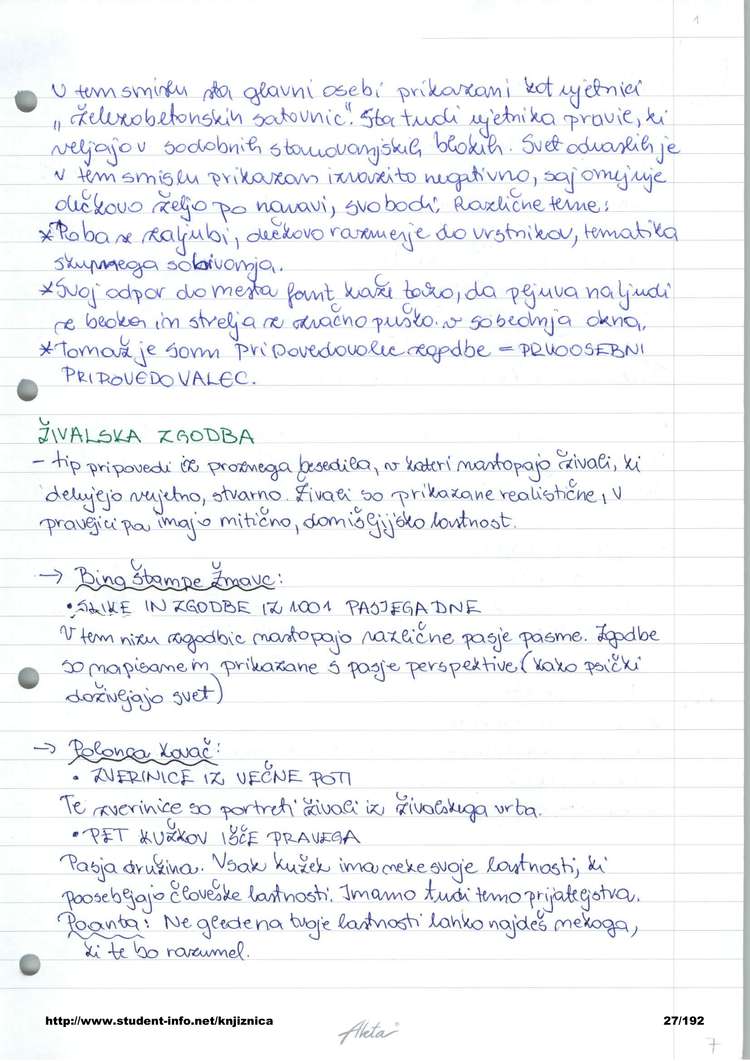 1
V tem smislu sta glavni osebi prikazani kot ujetnici
„železobetonskih satovnic". Sta tudi ujetnika pravil, ki
veljajo v sodobnih stanovanjskih blokih. Svet odraslih je
v tem smislu prikazan izrazito negativno, saj omejuje
dečkovo željo po naravi, svobodi. Različne teme:
*Roba se zaljubi, dečkovo razmerje do vrstnikov, tematika
skupnega sobivanja.
*Svoj odpor do mesta fant kaže tako, da pljuva na ljudi
iz bloka in strelja z zračno puško v sobednja okna.
*Tomaž je sam pripovedovalec zgodbe = PRVOOSEBNI
PRIPOVEDOVALEC.
ŽIVALSKA ZGODBA
- tip pripovedi iz proznega besedila, v kateri nastopajo živali, ki
delujejo verjetno, stvarno. Živali so prikazane realistične, v
pravljici pa imajo mitično, domišljijsko lastnost.
→ Bina Štampe Žmavc:
• SLIKE IN ZGODBE IZ 1001 PASJEGA DNE
V tem nizu zgodbic nastopajo različne pasje pasme. Zgodbe
so napisane in prikazane s pasje perspektive (kako psički
doživljajo svet)
→ Polonca Kovač:
• ZVERINICE IZ VEČNE POTI
Te zverinice so portreti živali iz živalskega vrta.
• PET KUŽKOV IŠČE PRAVEGA
Pasja družina. Vsak kužek ima neke svoje lastnosti, ki
poosebljajo človeške lastnosti. Imamo tudi temo prijateljstva.
Poanta: Ne glede na tvoje lastnosti lahko najdeš nekoga,
ki te bo razumel.
http://www.student-info.net/knjiznica
27/192
Aleta
7